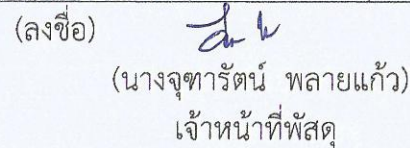 (ลงชื่อ)
(นางจุฑารัตน์ พลายแก้ว)
เจ้าหน้าที่พัสดุ